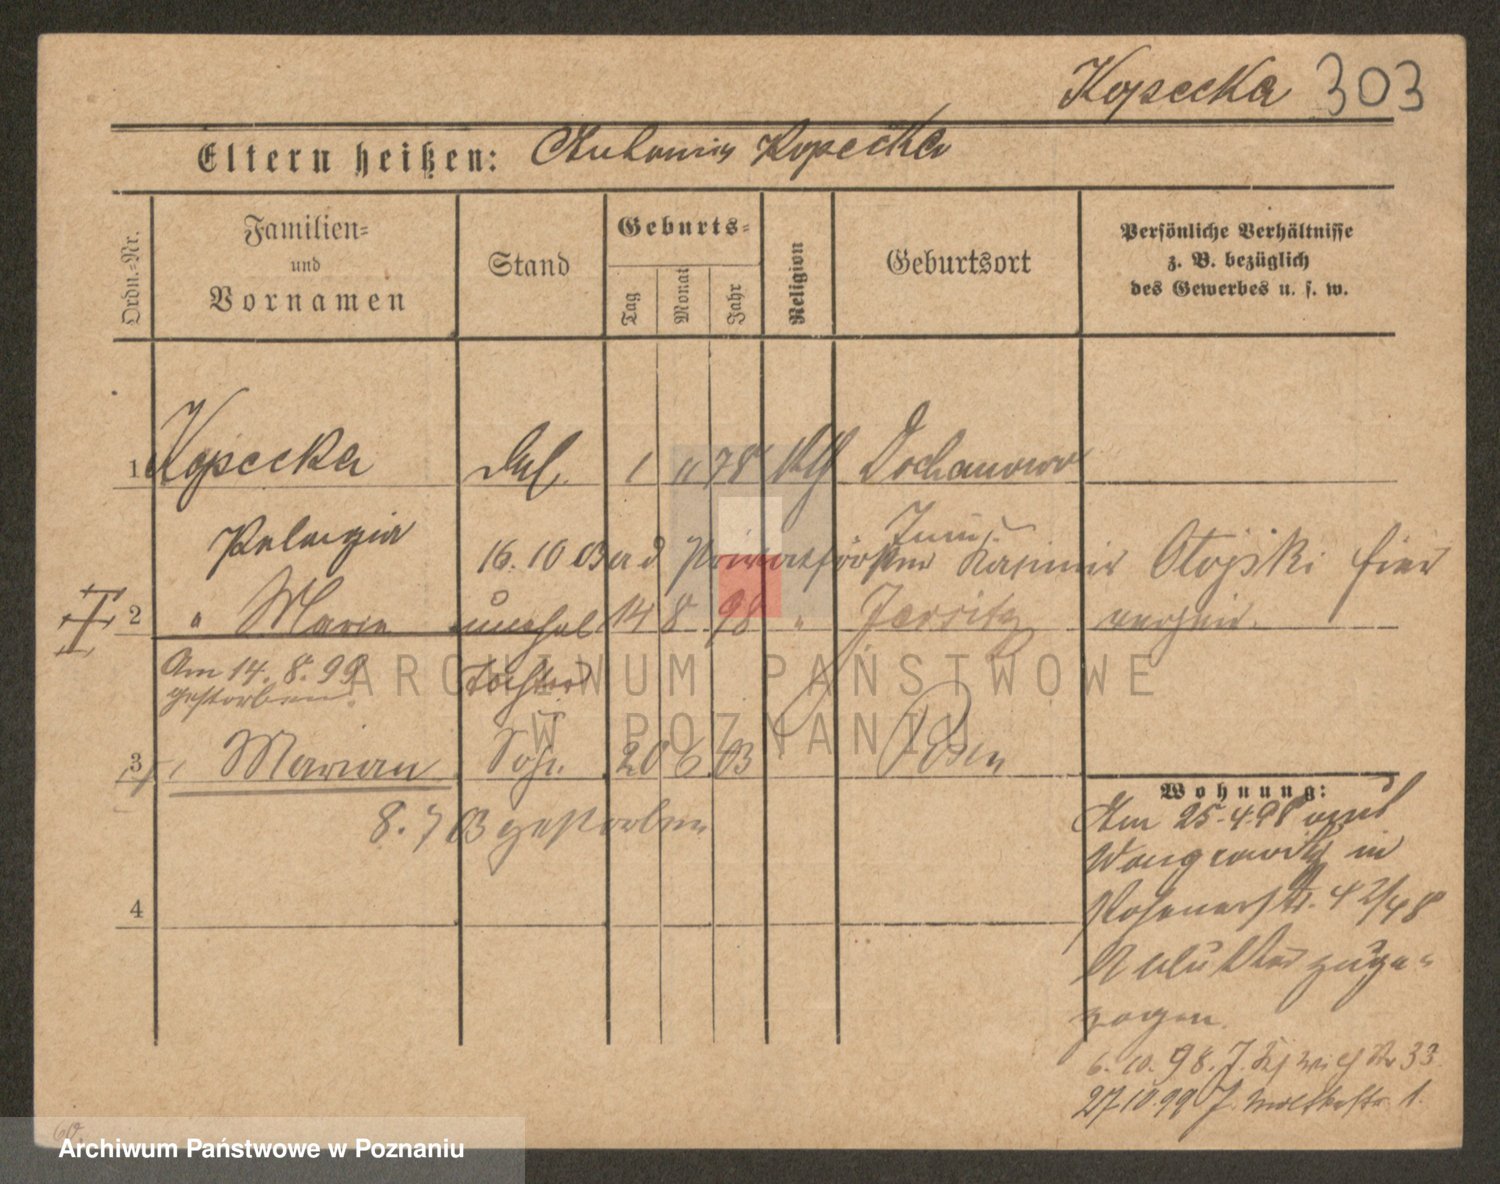 Kopecka 303
Eltern heißen: Antonina Kopecka
Ordn.-Nr.
Familien-
und
Vornamen
Stand
Geburts-
Tag
Monat
Jahr
Religion
Geburtsort
Persönliche Verhältnisse
z. B. bezüglich
des Gewerbes u. s. w.
1 Kopecka 1 11 78 kth Dochanowo
Pelagia
16.10 03 Kasimir hier
2 " Marie unehel 14 8 98 " Jersitz
Am 14. 8. 99 Tochter
gestorben.
3 Marian Sohn 20 6 03 Posen
8. 7 03 gestorben
4
Wohnung:
Am 25.4.98 von
Wongrowitz in
Posenerstr. 42/48
zuge-
zogen.
6. 10. 98. J. 33
27.10.99 J. Moltkestr 1.
ARCHIWUM PAŃSTWOWE
W POZNANIU
Archiwum Państwowe w Poznaniu